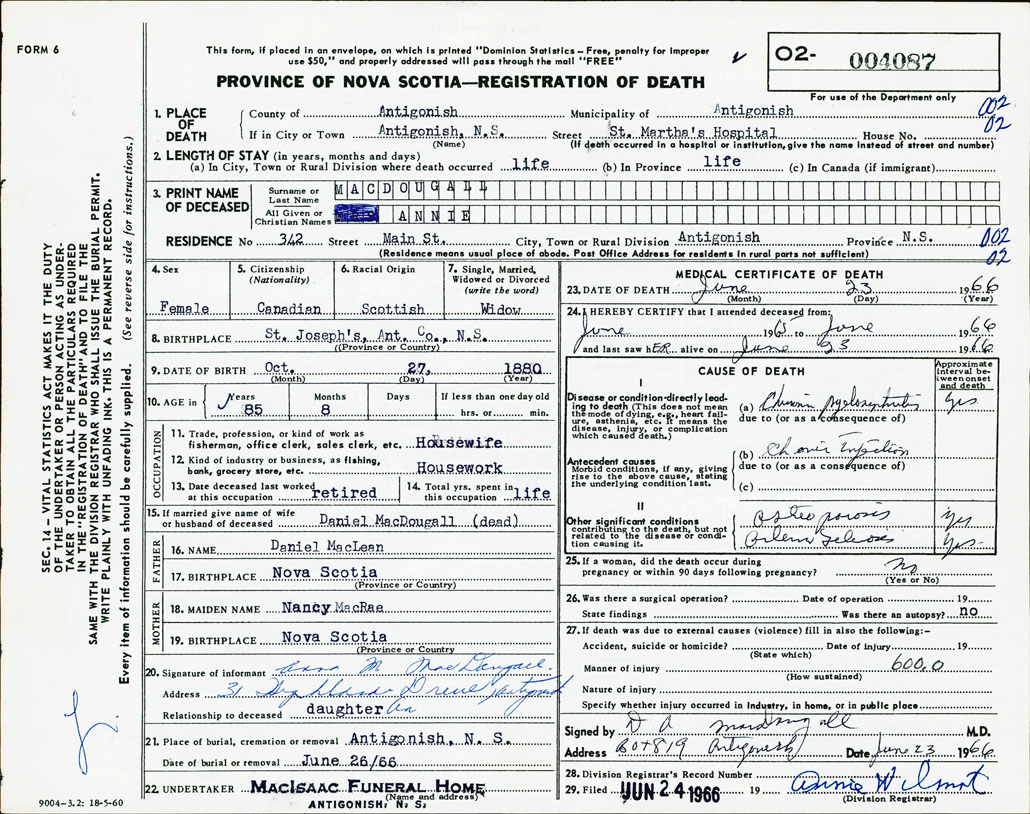 FORM 6
This form, if placed in an envelope, on which is printed "Dominion Statistics – Free, penalty for improper
use $50," and properly addressed will pass through the mail "FREE"
PROVINCE OF NOVA SCOTIA—REGISTRATION OF DEATH
02- 004087
For use of the Department only
1. PLACE OF DEATH
County of Antigonish Municipality of Antigonish 002
If in City or Town Antigonish, N.S. Street St. Martha's Hospital House No. 02
(Name) (If death occurred in a hospital or institution, give the name instead of street and number)
2. LENGTH OF STAY (in years, months and days)
(a) In City, Town or Rural Division where death occurred life (b) In Province life (c) In Canada (if immigrant)
3. PRINT NAME OF DECEASED
Surname or Last Name MACDOUGALL
All Given or Christian Names ANNIE
RESIDENCE No 342 Street Main St. City, Town or Rural Division Antigonish Province N.S. 002
(Residence means usual place of abode. Post Office Address for residents in rural parts not sufficient) 02
4. Sex
Female
5. Citizenship
(Nationality)
Canadian
6. Racial Origin
Scottish
7. Single, Married,
Widowed or Divorced
(write the word)
Widow
8. BIRTHPLACE St. Joseph's, Ant. Co., N.S.
((Province or Country)
9. DATE OF BIRTH Oct. 27, 1880
(Month) (Day) (Year)
10. AGE in Years Months Days If less than one day old
85 8 hrs. or min.
OCCUPATION
11. Trade, profession, or kind of work as
fisherman, office clerk, sales clerk, etc. Housewife
12. Kind of industry or business, as fishing,
bank, grocery store, etc. Housework
13. Date deceased last worked
at this occupation retired
14. Total yrs. spent in
this occupation life
15. If married give name of wife
or husband of deceased Daniel MacDougall (dead)
FATHER
16. NAME Daniel MacLean
17. BIRTHPLACE Nova Scotia
(Province or Country)
MOTHER
18. MAIDEN NAME Nancy MacRae
19. BIRTHPLACE Nova Scotia
(Province or Country
20. Signature of informant Anna M MacDougall.
Address 31 Highland Drive, Antigonish
Relationship to deceased daughter
21. Place of burial, cremation or removal Antigonish, N. S.
Date of burial or removal June 26/66
22 UNDERTAKER MACISAAC FUNERAL HOME
(Name and address)
ANTIGONISH, N. S.
MEDICAL CERTIFICATE OF DEATH
23. DATE OF DEATH June 23 1966
(Month) (Day) (Year)
24. I HEREBY CERTIFY that I attended deceased from:
June 1965 to June 1966
and last saw hER alive on June 23 1966
CAUSE OF DEATH
Approximate interval between onset and death
I
Disease or condition directly leading to death (This does not mean the mode of dying, e.g., heart failure, asthenia, etc. It means the disease, injury, or complication which caused death.)
(a) Chronic pyelonephritis yrs
due to (or as a consequence of)
Antecedent causes
Morbid conditions, if any, giving rise to the above cause, stating the underlying condition last.
(b) Chronic Infection
due to (or as a consequence of)
(c)
II
Other significant conditions
contributing to the death, but not related to the disease or condition causing it.
Osteoporosis yrs
Arterio Sclerosis yrs
25. If a woman, did the death occur during
pregnancy or within 90 days following pregnancy? no
(Yes or No)
26. Was there a surgical operation? Date of operation 19
State findings Was there an autopsy? no
27. If death was due to external causes (violence) fill in also the following:–
Accident, suicide or homicide? Date of injury 19
(State which)
Manner of injury 600.0
(How sustained)
Nature of injury
Specify whether injury occurred in industry, in home, or in public place
Signed by D A MacDougall M.D.
Address Box 819 Antigonish Date June 23 1966
28. Division Registrar's Record Number
29. Filed JUN 24 1966 19 Annie Wilmot
(Division Registrar)
SEC. 14 – VITAL STATISTICS ACT MAKES IT THE DUTY
OF THE UNDERTAKER OR PERSON ACTING AS UNDER-
TAKER TO OBTAIN ALL THE PARTICULARS REQUIRED
IN THE "REGISTRATION OF DEATH" AND TO FILE THE
SAME WITH THE DIVISION REGISTRAR WHO SHALL ISSUE THE BURIAL PERMIT.
WRITE PLAINLY WITH UNFADING INK. THIS IS A PERMANENT RECORD.
Every item of information should be carefully supplied. (See reverse side for instructions.)
9004-3.2: 18-5-60